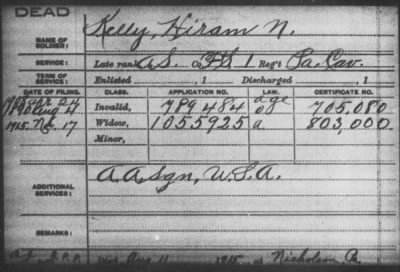 DEAD
NAME OF SOLDIER: Kelly, Hiram N.
SERVICE: Late rank A S. Co 1 Reg't Pa. Cav.
TERM OF SERVICE: Enlisted , 1 Discharged , 1
DATE OF FILING. CLASS. APPLICATION NO. LAW. CERTIFICATE NO.
Invalid, 789484 age 705,080
1915 17 Widow, 1055925 803,000
Minor,
ADDITIONAL SERVICES: A A Sgn, U.S.A.
REMARKS:
Aug 11 1915, at Nicholson, Pa.